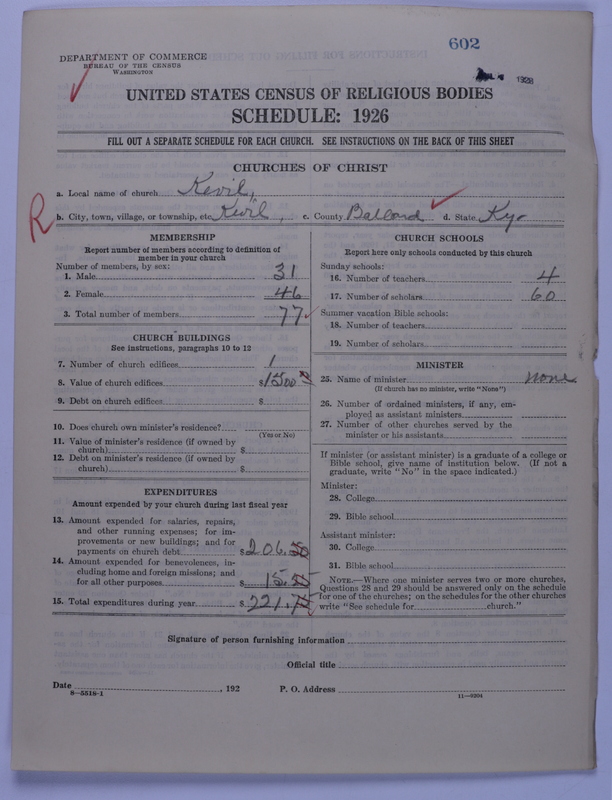 602
DEPARTMENT OF COMMERCE
BUREAU OF THE CENSUS
WASHINGTON
1928
UNITED STATES CENSUS OF RELIGIOUS BODIES
SCHEDULE: 1926
FILL OUT A SEPARATE SCHEDULE FOR EACH CHURCH. SEE INSTRUCTIONS ON THE BACK OF THIS SHEET
CHURCHES OF CHRIST
a. Local name of church Kevil,
R
b. City, town, village, or township, etc. Kevil, c. County Ballard d. State Ky-
MEMBERSHIP
Report number of members according to definition of
member in your church
Number of members, by sex:
1. Male 31
2. Female 46
3. Total number of members 77
CHURCH BUILDINGS
See instructions, paragraphs 10 to 12
7. Number of church edifices 1
8. Value of church edifices $1500
9. Debt on church edifices $
10. Does church own minister's residence?
(Yes or No)
11. Value of minister's residence (if owned by
church) $
12. Debt on minister's residence (if owned by
church) $
EXPENDITURES
Amount expended by your church during last fiscal year
13. Amount expended for salaries, repairs,
and other running expenses; for im-
provements or new buildings; and for
payments on church debt $206.50
14. Amount expended for benevolences, in-
cluding home and foreign missions; and
for all other purposes $15.25
15. Total expenditures during year $221.75
CHURCH SCHOOLS
Report here only schools conducted by this church
Sunday schools:
16. Number of teachers 4
17. Number of scholars 60
Summer vacation Bible schools:
18. Number of teachers
19. Number of scholars
MINISTER
25. Name of minister none
(If church has no minister, write "None")
26. Number of ordained ministers, if any, em-
ployed as assistant ministers
27. Number of other churches served by the
minister or his assistants
If minister (or assistant minister) is a graduate of a college or
Bible school, give name of institution below. (If not a
graduate, write "No" in the space indicated.)
Minister:
28. College
29. Bible school
Assistant minister:
30. College
31. Bible school
NOTE.—Where one minister serves two or more churches,
Questions 28 and 29 should be answered only on the schedule
for one of the churches; on the schedules for the other churches
write "See schedule for church."
Signature of person furnishing information
Official title
Date , 192 P. O. Address
8—5518-1 11—9204